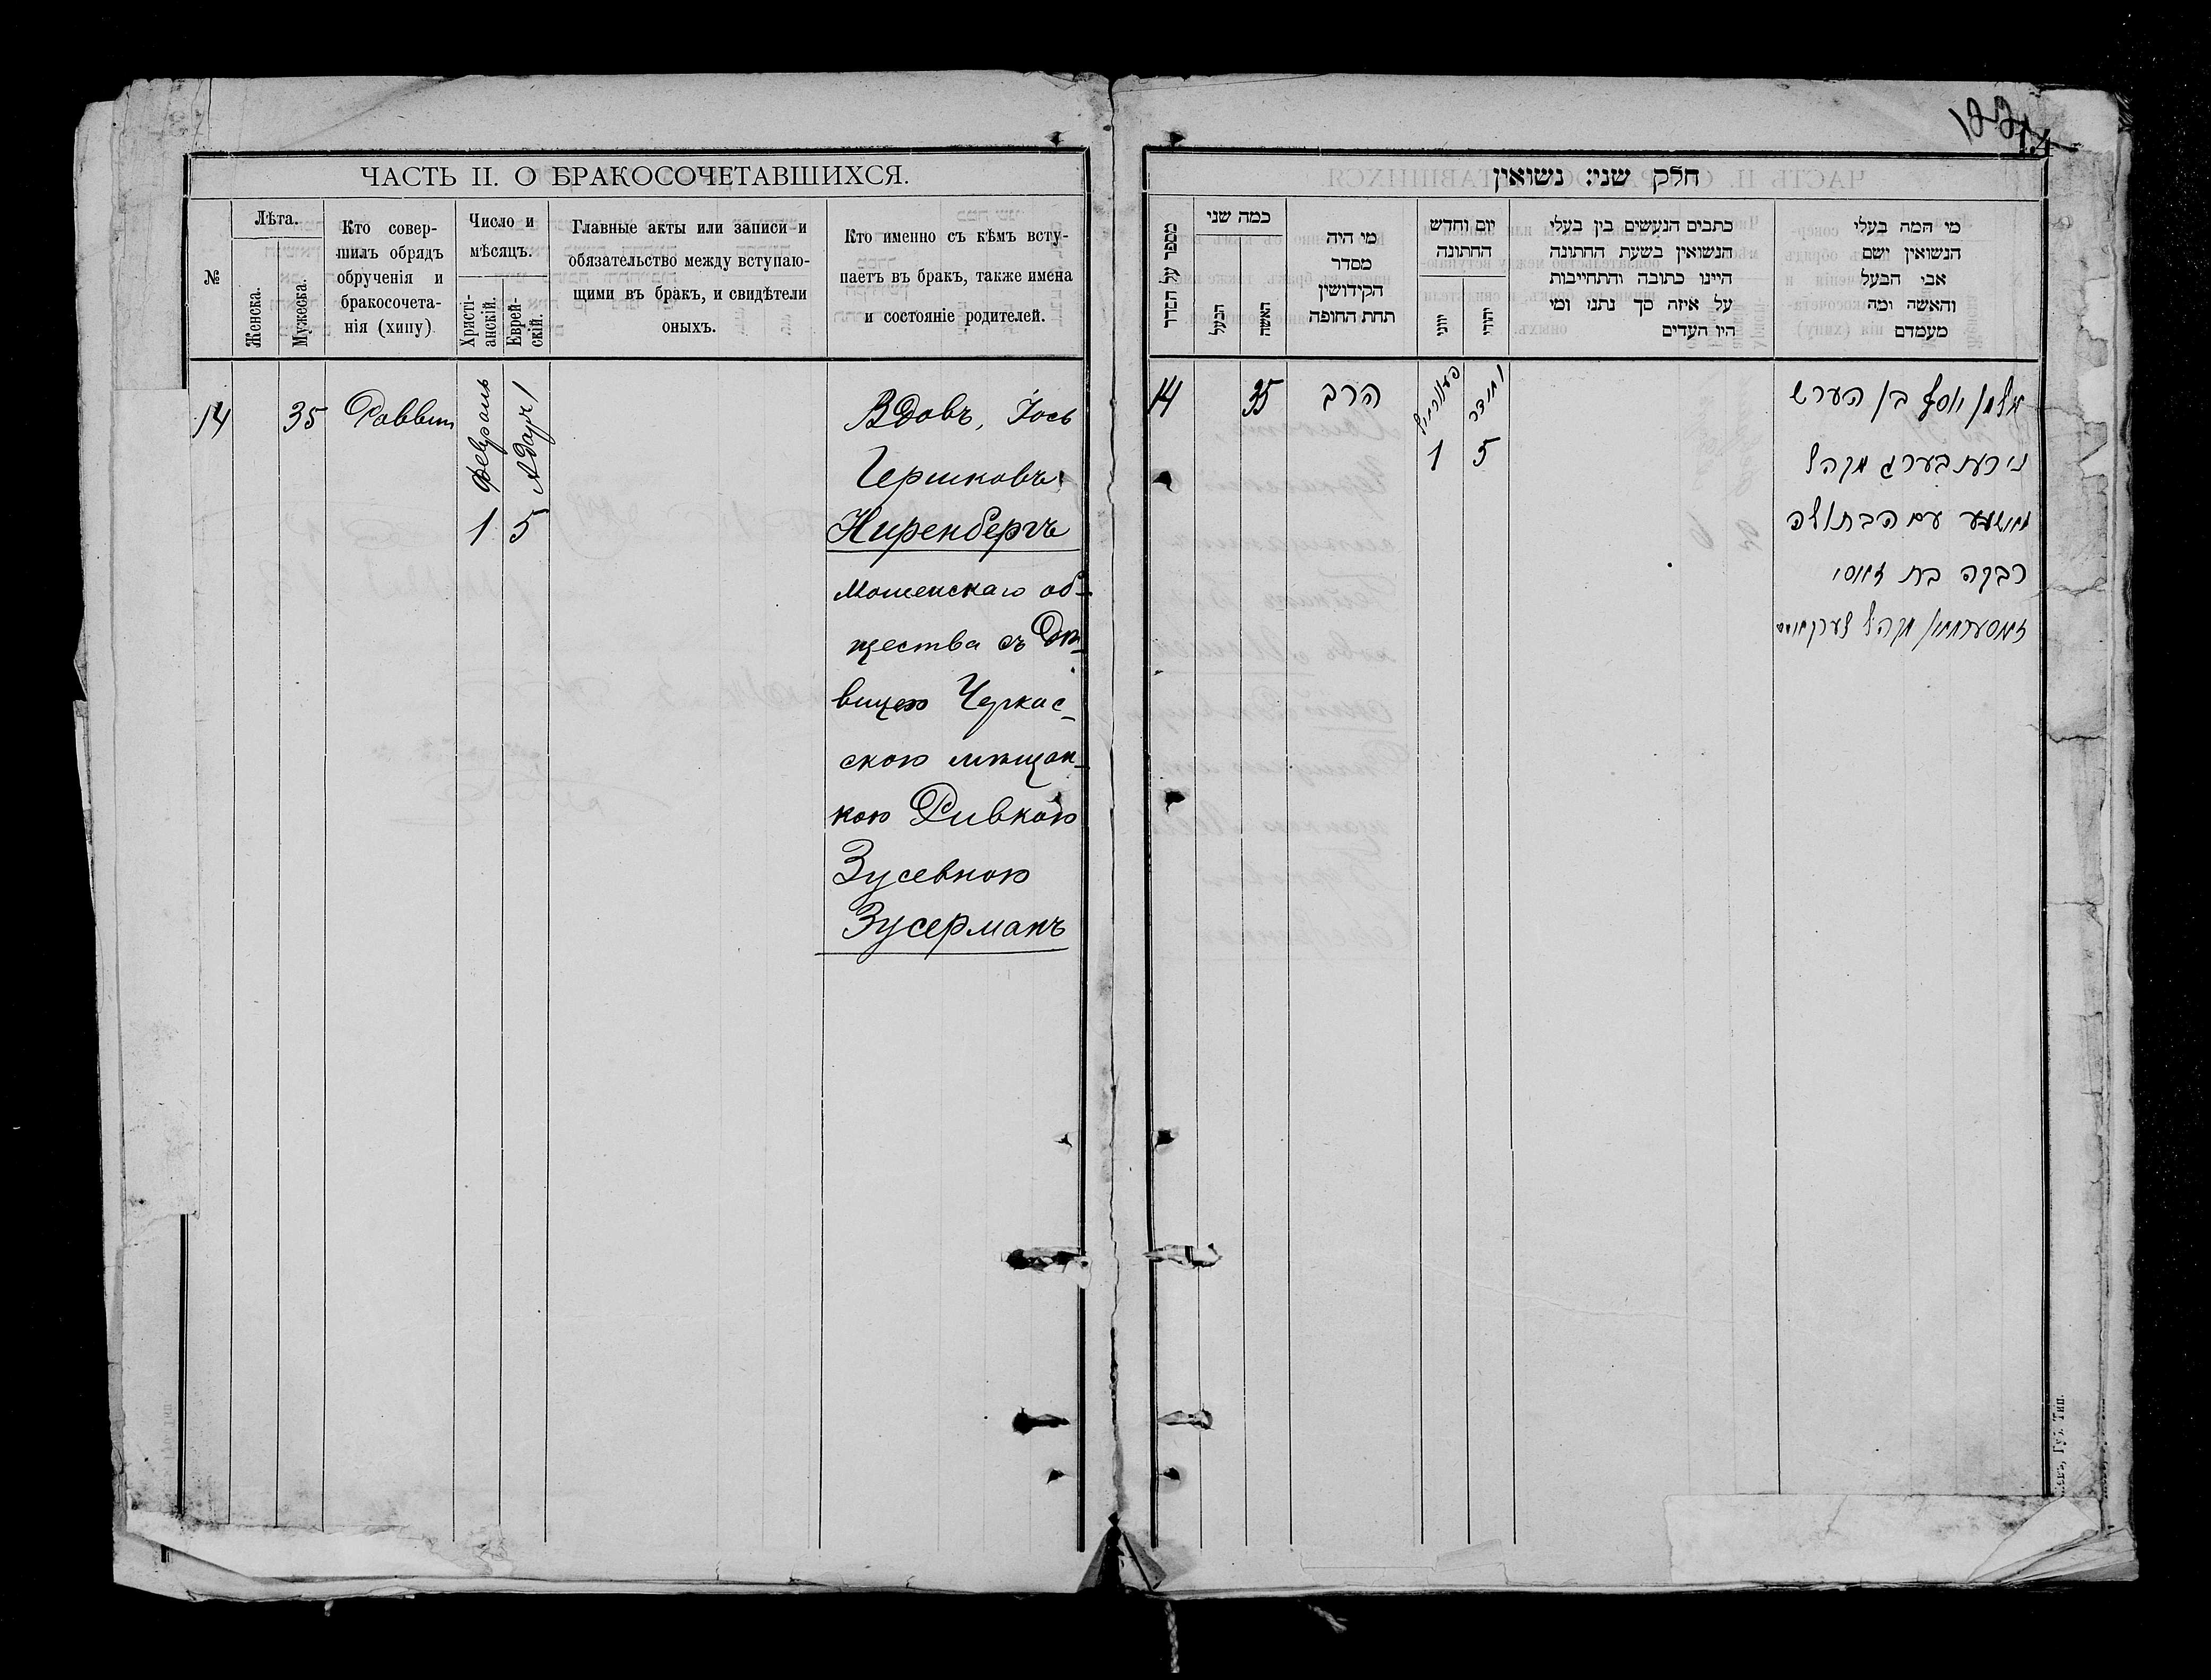 ЧАСТЬ II. О БРАКОСОЧЕТАВШИХСЯ.
№
Лѣта.
Женска.
Мужеска.
Кто совер-
шилъ обрядъ
обрученія и
бракосочета-
нія (хипу)
Число и
мѣсяцъ.
Христі-
анскій.
Еврей-
скій.
Главные акты или записи и
обязательство между вступаю-
щими въ бракъ, и свидѣтели
оныхъ.
Кто именно съ кѣмъ всту-
паетъ въ бракъ, также имена
и состояніе родителей.
14
35
Раввин
Февраль
1
5
Вдовъ, Іось
Гершковъ
Ниренбергъ
Мошенскаго об-
щества съ Дѣ-
вицею Черкас-
скою мѣщан-
кою Ривкою
Зусевною
Зусерманъ
14
חלק שני: נשואין
מספר על הסדר
כמה שני
הבעל
האשה
מי היה
מסדר
הקידושין
תחת החופה
יום וחדש
החתונה
יוני
יהודי
כתבים הנעשים בין בעלי
הנשואין בשעת החתונה
היינו כתובה והתחייבות
על איזה סך נתנו ומי
היו העדים
מי המה בעלי
הנשואין ושם
אבי הבעל
והאשה ומה
מעמדם
14
35
הרב
1
5
אלמן יוסף בן הערש
נירענבערג מקהל
עם הבתולה
רבקה בת
מקהל
Губ. Тип.